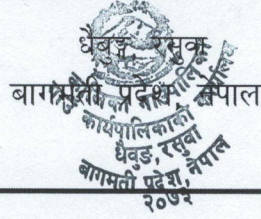 धैवुङ, रसुवा
बागमती प्रदेश, नेपाल
कार्यपालिकाको
धैवुङ, रसुवा
बागमती प्रदेश, नेपाल
२०७३